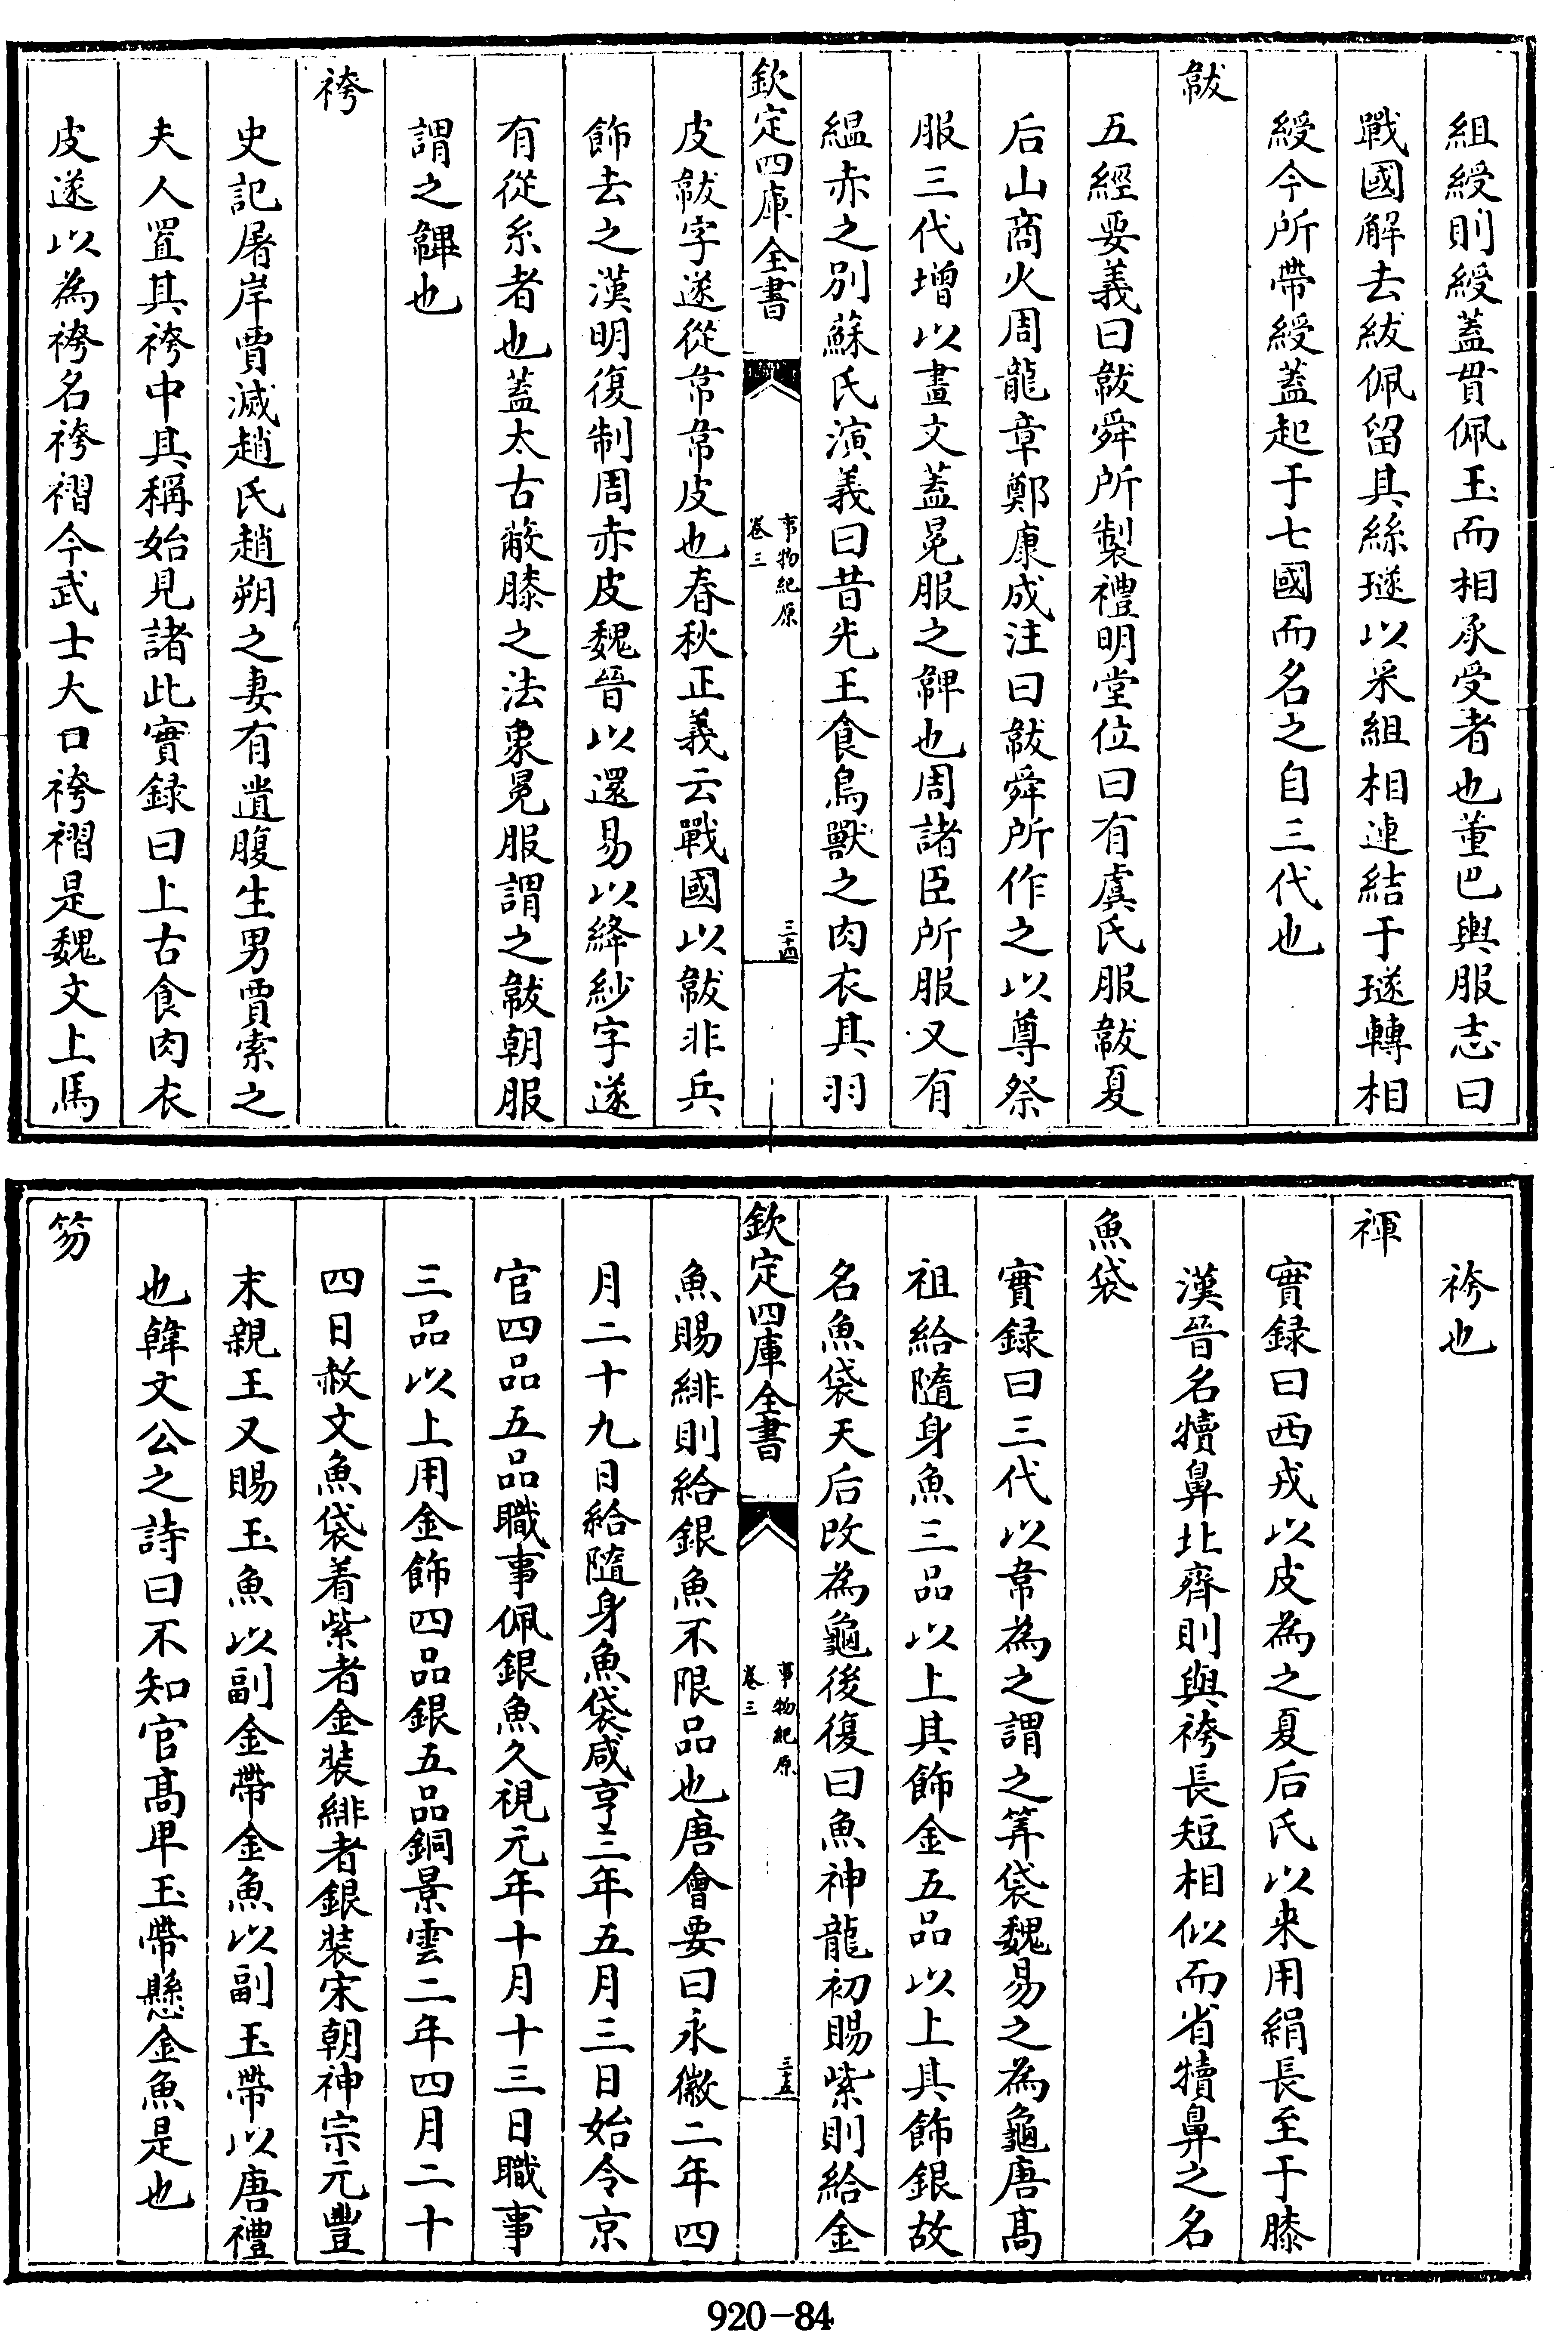 組綬則綬蓋貫佩玉而相承受者也董巴輿服志曰
戰國解去紱佩留其絲璲以采組相連結于璲轉相
綬今所帶綬蓋起于七國而名之自三代也
韍
五經要義曰韍舜所製禮明堂位曰有虞氏服韍夏
后山商火周龍章鄭康成注曰韍舜所作之以尊祭
服三代增以畫文蓋冕服之韠也周諸臣所服又有
緼赤之別蘇氏演義曰昔先王食鳥獸之肉衣其羽
欽定四庫全書
事物紀原
卷三
三十四
皮韍字遂從韋韋皮也春秋正義云戰國以韍非兵
飾去之漢明復制周赤皮魏晉以還易以絳紗字遂
有從糸者也蓋太古蔽膝之法象冕服謂之韍朝服
謂之韠也
袴
史記屠岸賈滅趙氏趙朔之妻有遺腹生男賈索之
夫人置其袴中其稱始見諸此實録曰上古食肉衣
皮遂以為袴名袴褶今武士大口袴褶是魏文上馬
袴也
褌
實録曰西戎以皮為之夏后氏以來用絹長至于膝
漢晉名犢鼻北齊則與袴長短相似而省犢鼻之名
魚袋
實録曰三代以韋為之謂之筭袋魏易之為龜唐髙
祖給隨身魚三品以上其飾金五品以上其飾銀故
名魚袋天后改為龜後復曰魚神龍初賜紫則給金
欽定四庫全書
事物紀原
卷三
三十五
魚賜緋則給銀魚不限品也唐會要曰永徽二年四
月二十九日給隨身魚袋咸亨三年五月三日始令京
官四品五品職事佩銀魚久視元年十月十三日職事
三品以上用金飾四品銀五品銅景雲二年四月二十
四日赦文魚袋着紫者金裝緋者銀裝宋朝神宗元豐
末親王又賜玉魚以副金帶金魚以副玉帶以唐禮
也韓文公之詩曰不知官髙卑玉帶懸金魚是也
笏
920-84